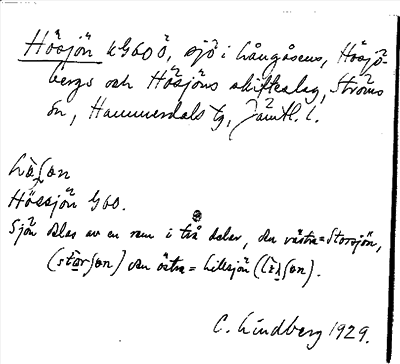 Hösjön kG60 ö, sjö i Långåsens, Hösjö-
bergs och Hösjöns skifteslag, Ströms
sn, Hammerdals tg, Jämtl. l.
Hössjön G60.
Sjön delas av en rem i två delar, den västra = Storsjön,
(stǒrʃɷn) den östra = Lillsjön
C. Lindberg 1929.